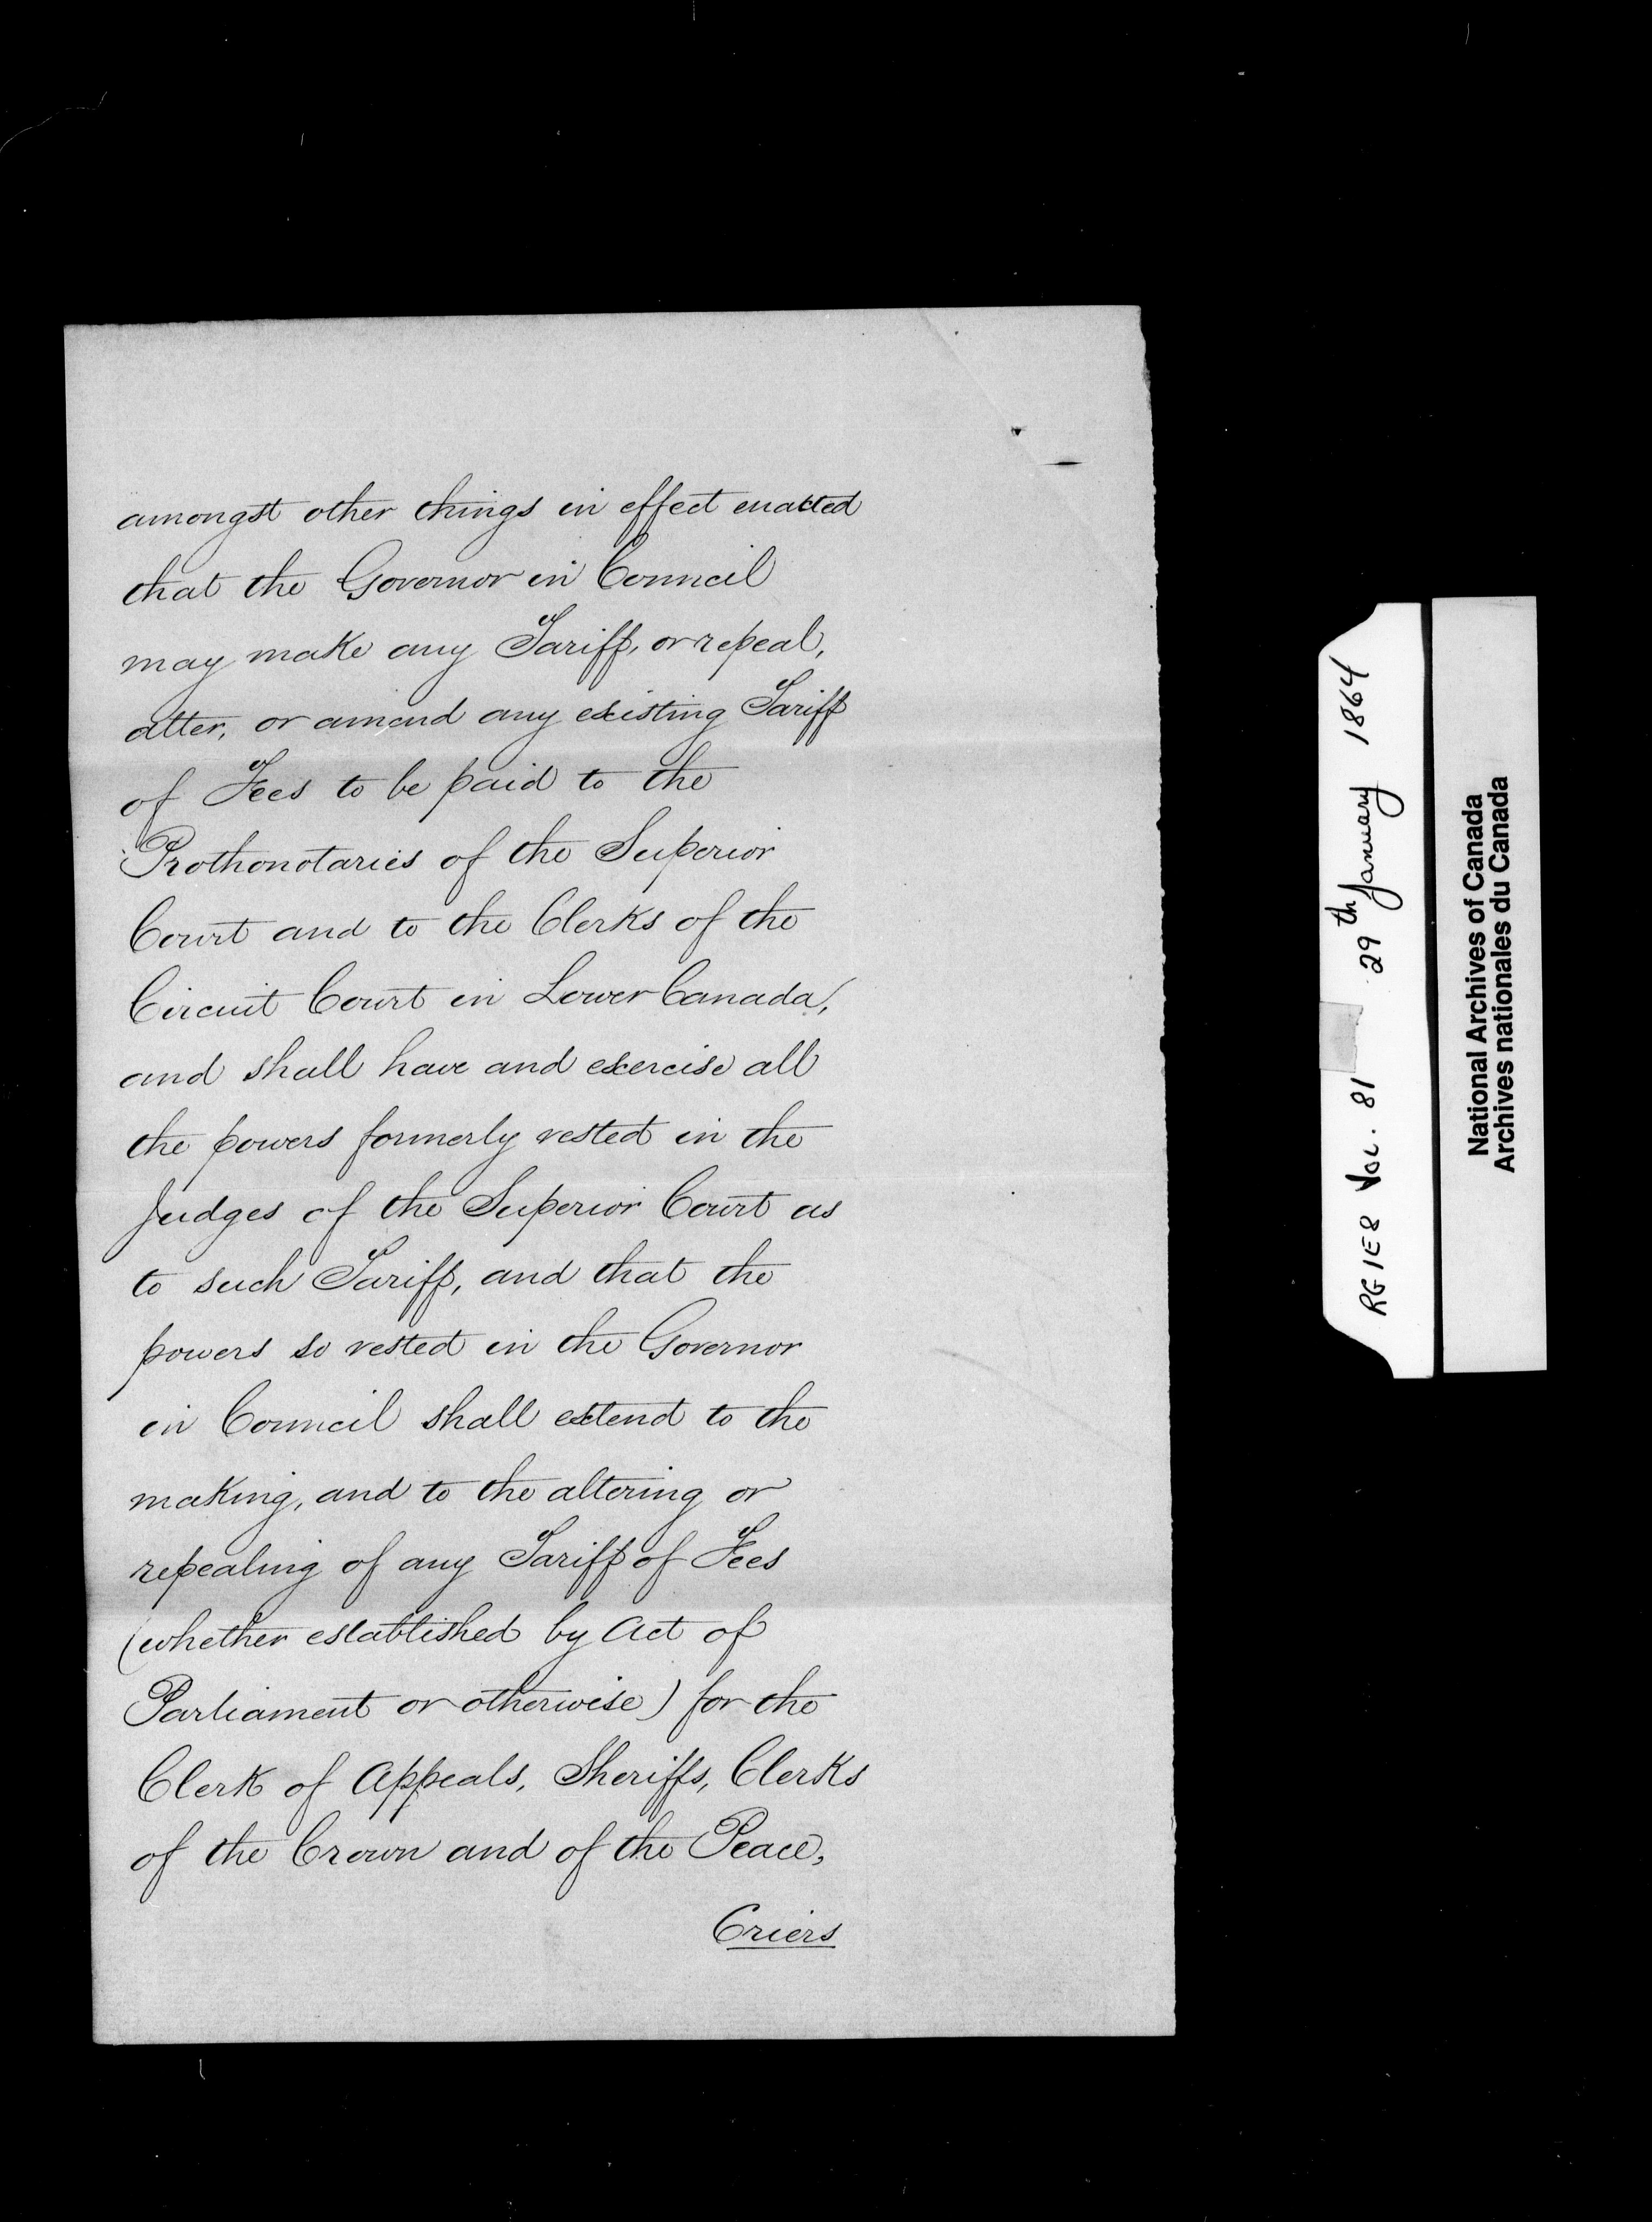 amongst other things in effect enacted
that the Governor in Council
may make any Tariff, or repeal,
alter, or amend any existing Tariff
of Fees to be paid to the
Prothonotaries of the Superior
Court and to the Clerks of the
Circuit Court in Lower Canada,
and shall have and exercise all
the powers formerly vested in the
Judges of the Superior Court as
to such Tariff, and that the
powers so vested in the Governor
in Council shall extend to the
making, and to the altering or
repealing of any Tariff of Fees
(whether established by Act of
Parliament or otherwise) for the
Clerk of Appeals, Sheriffs, Clerks
of the Crown and of the Peace,
Criers
RG 1E8 Vol. 81 29th January 1864
National Archives of Canada
Archives nationales du Canada